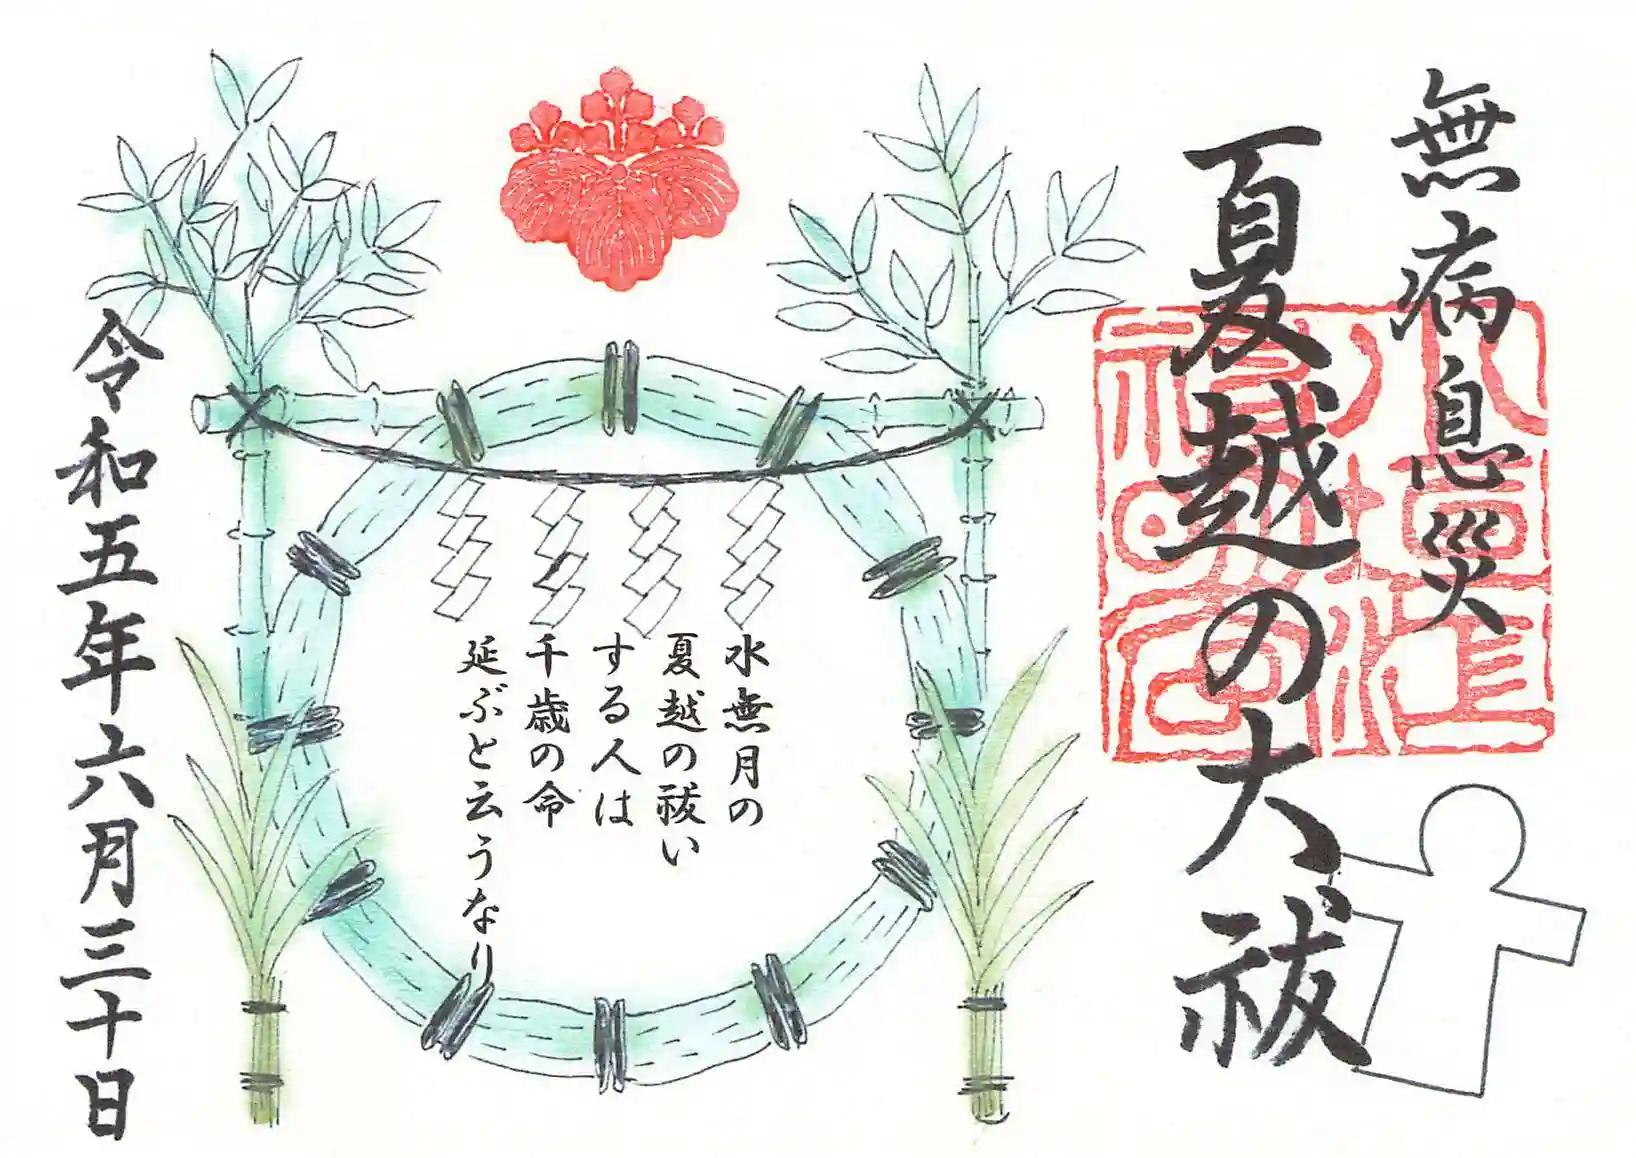 無病息災
夏越の大祓
水無月の
夏越の祓い
する人は
千歳の命
延ぶと云うなり
令和五年六月三十日